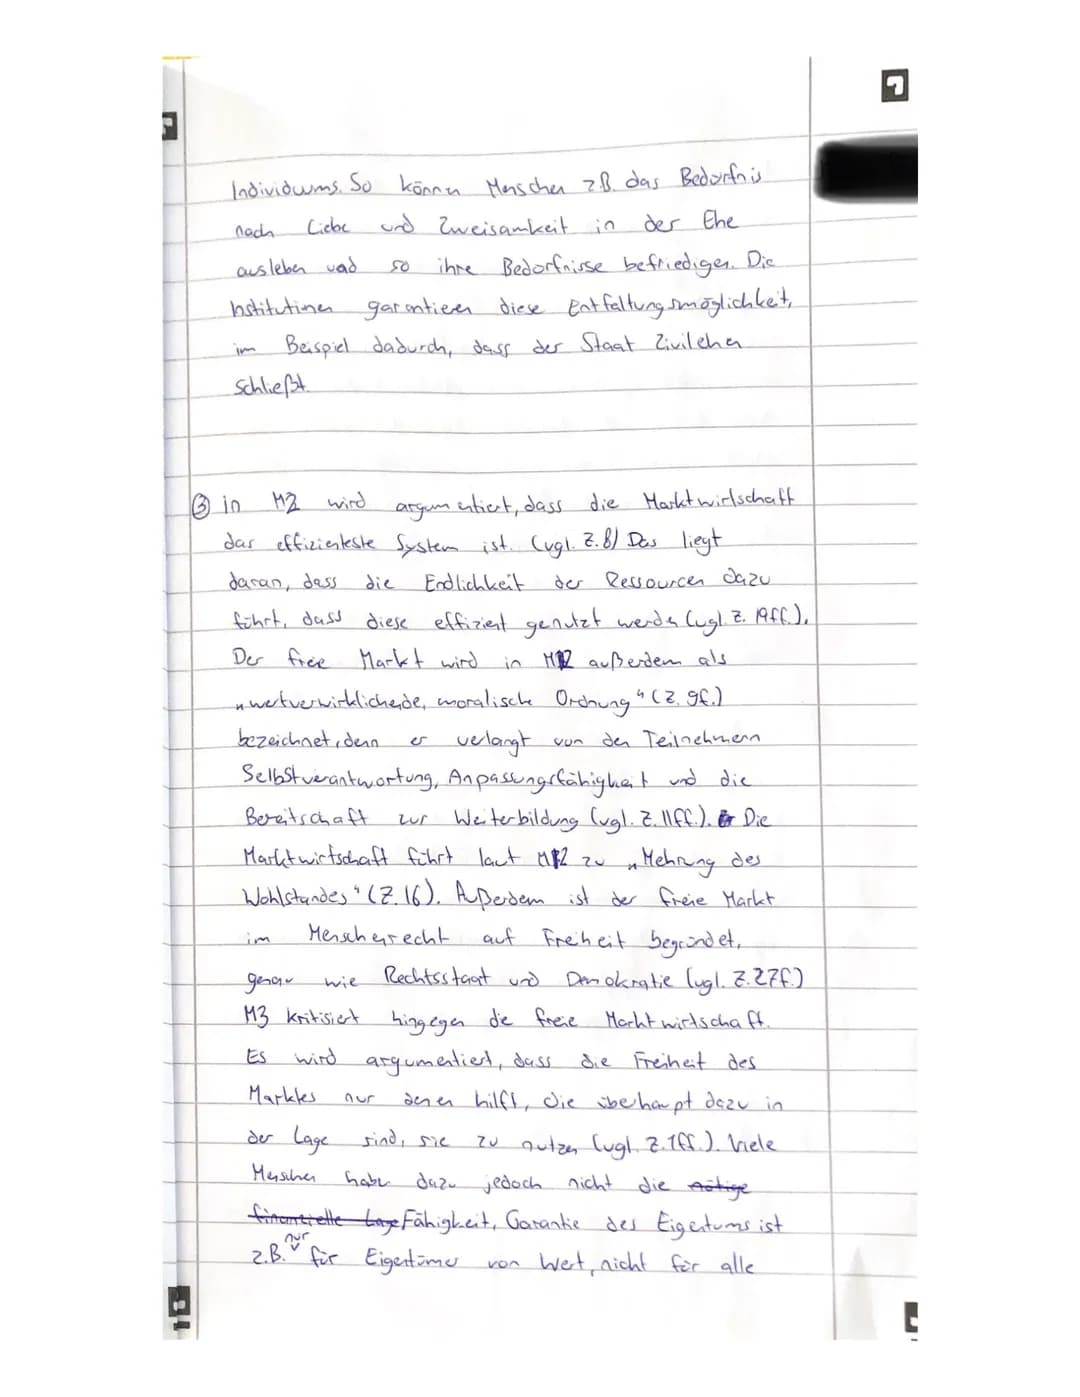 Individuums. So können Menschen z.B. das Bedürfnis
nach Liebe und Zweisamkeit in der Ehe
ausleben und so ihre Bedürfnisse befriedigen. Die
Institutionen garantieren diese Entfaltungsmöglichkeit,
im Beispiel dadurch, dass der Staat Zivilehen
schließt.
③ in M2 wird argumentiert, dass die Marktwirtschaft
das effizienteste System ist. (vgl. Z.8) Das liegt
daran, dass die Endlichkeit der Ressourcen dazu
führt, dass diese effizient genutzt werden (vgl. Z. 19ff.).
Der freie Markt wird in M2 außerdem als
„wertverwirklichende, moralische Ordnung" (Z. 9f.)
bezeichnet, denn er verlangt von den Teilnehmern
Selbstverantwortung, Anpassungsfähigkeit und die
Bereitschaft zur Weiterbildung (vgl. Z. 11ff.). Die
Marktwirtschaft führt laut M2 zu „Mehrung des
Wohlstandes" (Z. 16). Außerdem ist der freie Markt
im Menschenrecht auf Freiheit begründet,
genau wie Rechtsstaat und Demokratie (vgl. Z. 27f.)
M3 kritisiert hingegen die freie Marktwirtschaft.
Es wird argumentiert, dass die Freiheit des
Marktes nur denen hilft, die überhaupt dazu in
der Lage sind, sie zu nutzen (vgl. Z. 1ff.). Viele
Menschen haben dazu jedoch nicht die nötige
finanzielle Lage Fähigkeit, Garantie des Eigentums ist
z.B. nur für Eigentümer von Wert, nicht für alle